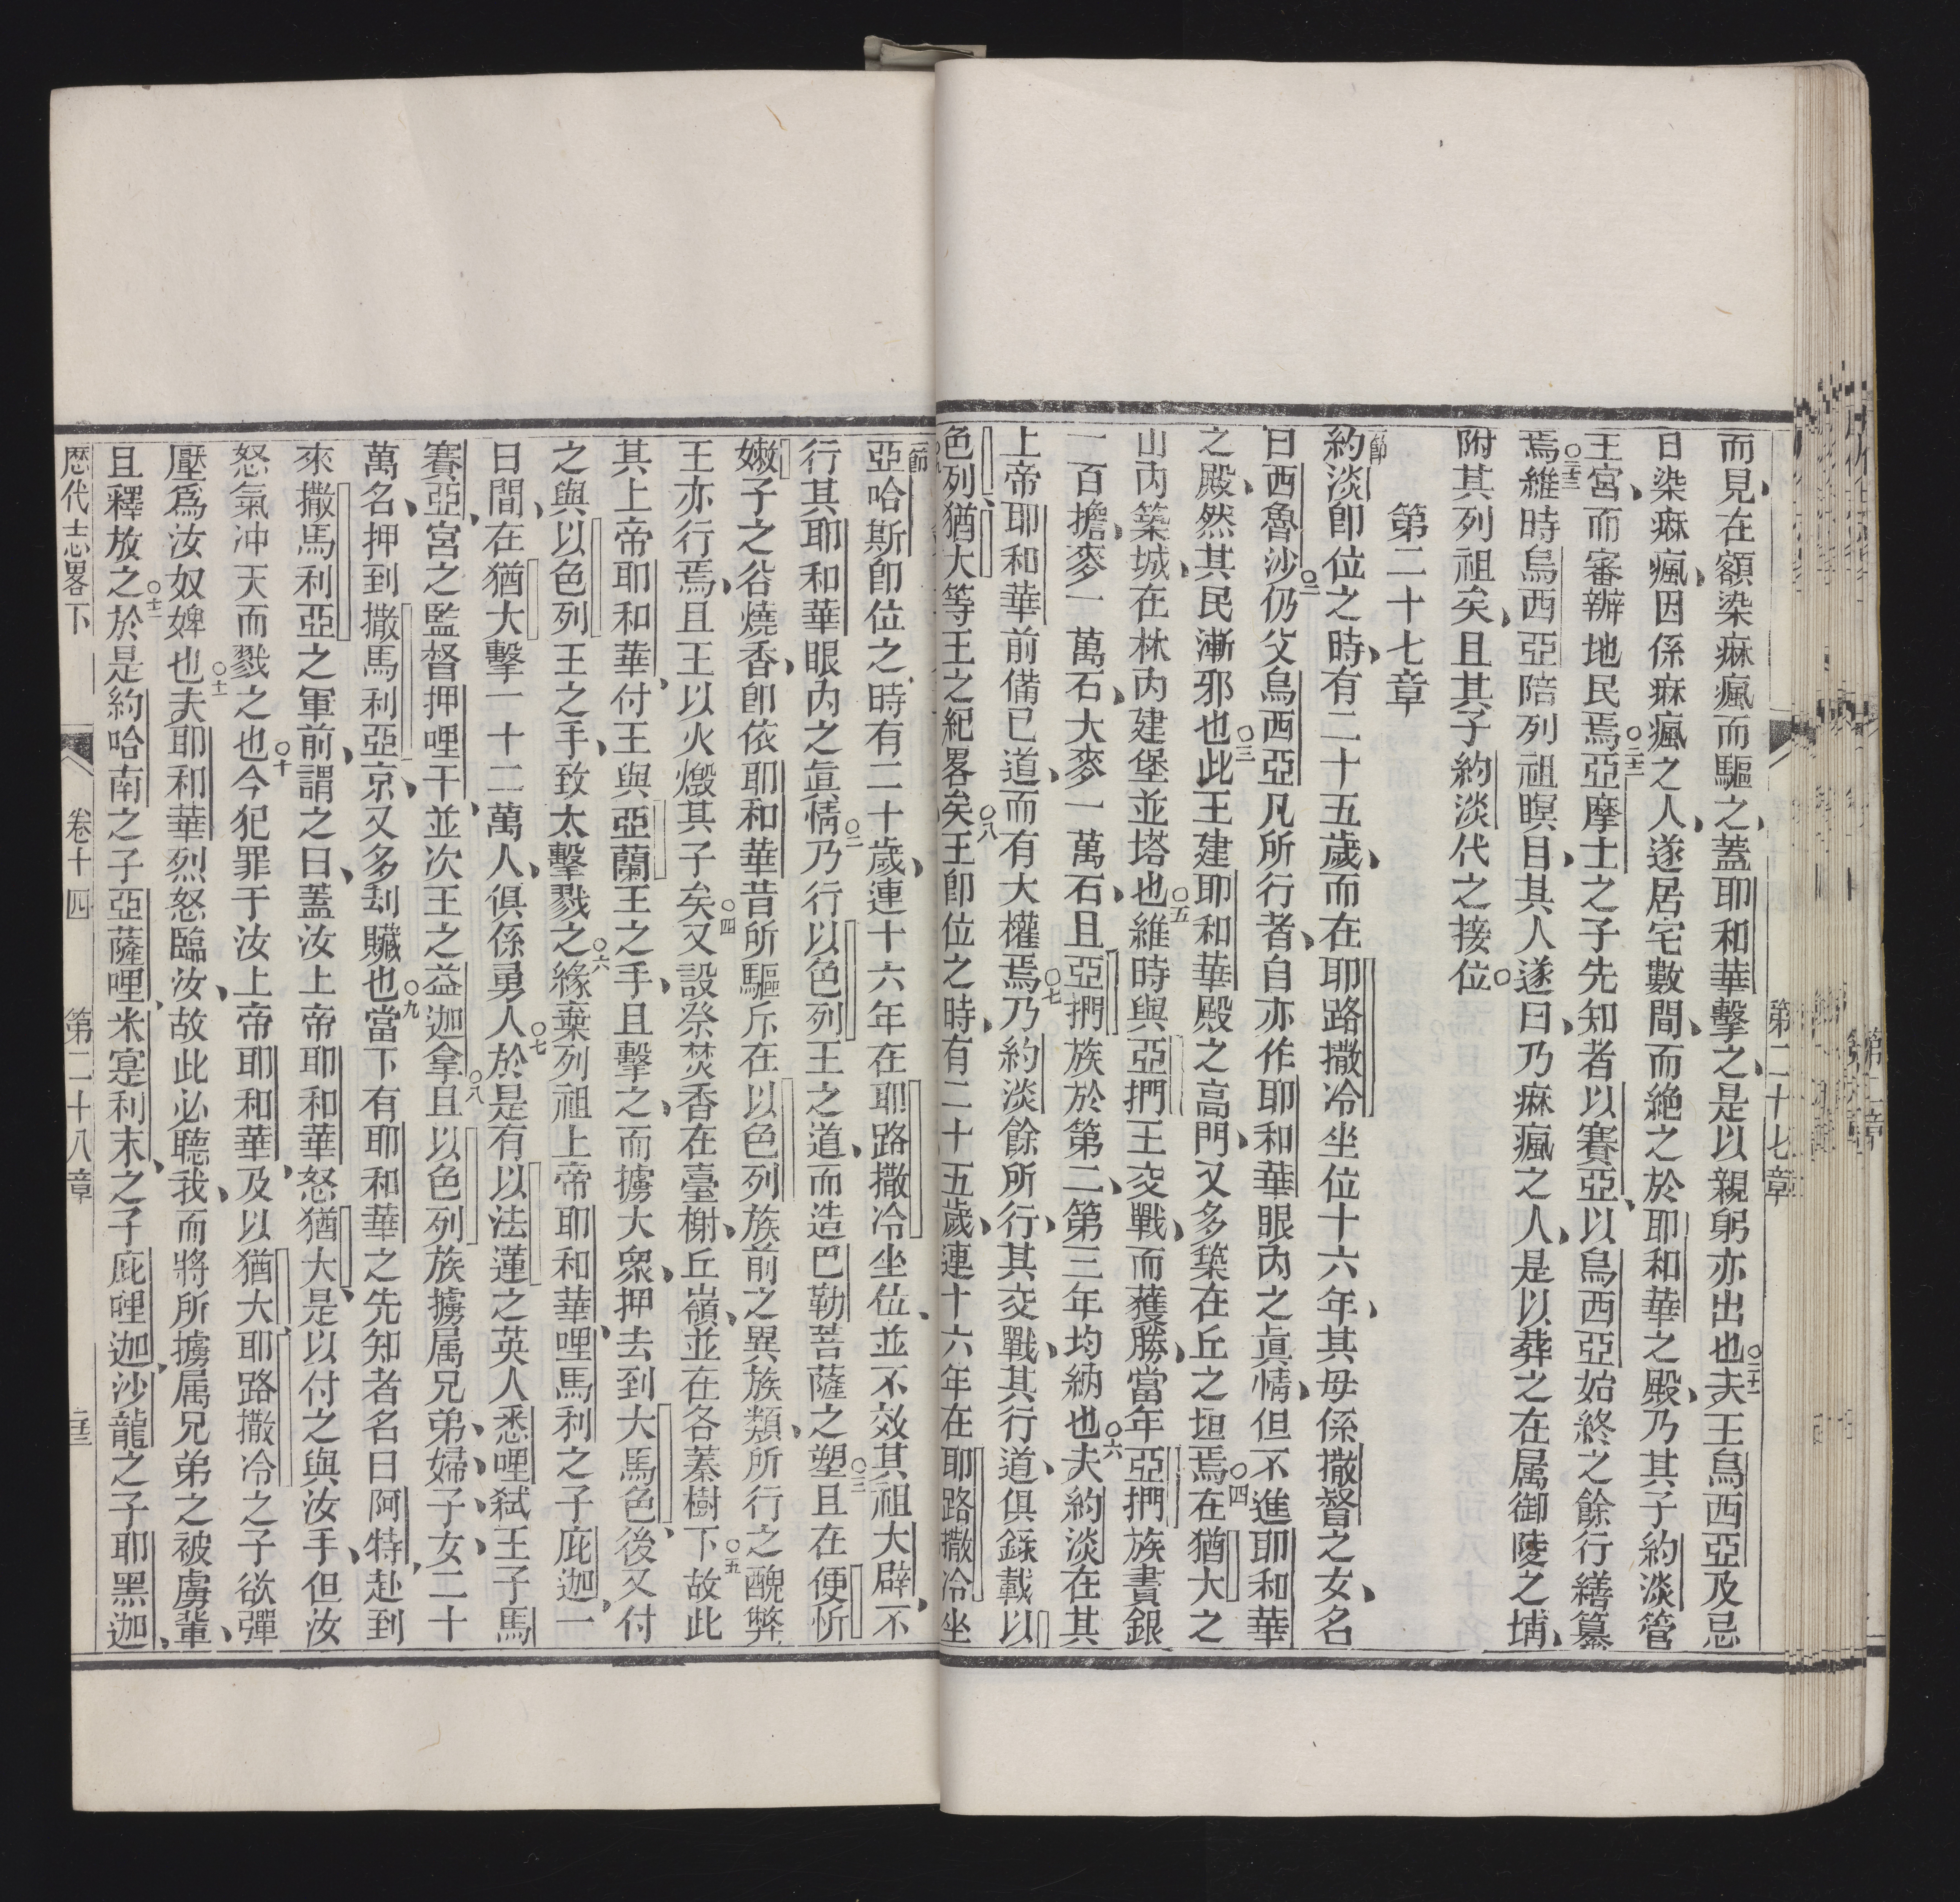 第二十七章
而見在額染痳瘋而驅之、蓋耶和華擊之、是以親躬亦出也○二十一夫王烏西亞及忌
日染痳瘋、因係痳瘋之人、遂居宅數間、而絶之於耶和華之殿、乃其子約淡管
王宮、而審辦地民焉○二十二亞摩士之子先知者以賽亞、以烏西亞始終之餘行繕纂
焉○二十三維時烏西亞陪列祖瞑目、其人遂曰、乃痳瘋之人、是以葬之在属御陵之埔、
附其列祖矣、且其子約淡代之接位○
第二十七章
一節約淡卽位之時、有二十五歲、而在耶路撒冷坐位十六年、其母係撒督之女、名
曰西魯沙○二仍父烏西亞凡所行者、自亦作耶和華眼內之眞情、但不進耶和華
之殿、然其民漸邪也○三此王建耶和華殿之高門、又多築在丘之垣焉○四在猶大之
山內築城、在林內建堡並塔也○五維時與亞捫王交戰、而獲勝、當年亞捫族賫銀
一百擔、麥一萬石、大麥一萬石、且亞捫族於第二、第三年均納也○六夫約淡在其
上帝耶和華前備已道、而有大權焉○七乃約淡餘所行、其交戰、其行道、俱錄載以
色列、猶大等王之紀畧矣○八王卽位之時、有二十五歲、連十六年在耶路撒冷坐
一節亞哈斯卽位之時有二十歲、連十六年在耶路撒冷坐位、並不效其祖大辟、不
行其耶和華眼內之眞情○二乃行以色列王之道、而造巴勒菩薩之塑○三且在便忻
嫩子之谷燒香、卽依耶和華昔所驅斥在以色列族前之異族類、所行之醜弊
王亦行焉、且王以火燬其子矣○四又設祭焚香在臺榭、丘嶺、並在各蓁樹下○五故此
其上帝耶和華、付王與亞蘭王之手、且擊之、而擄大衆、押去到大馬色、後又付
之與以色列王之手、致太擊戮之○六緣棄列祖上帝耶和華、哩馬利之子庇迦、一
日間、在猶大擊一十二萬人、俱係勇人○七於是有以法蓮之英人悉哩弑王子馬
賽亞、宮之監督押哩干、並次王之益迦拿○八且以色列族擄属兄弟、婦、子、女、二十
萬名、押到撒馬利亞京、又多刦贜也○九當下有耶和華之先知者名曰阿特、赴到
來撒馬利亞之軍前、謂之曰、蓋汝上帝耶和華怒猶大、是以付之與汝手、但汝
怒氣沖天而戮之也○十今犯罪于汝上帝耶和華、及以猶大、耶路撒冷之子欲彈
壓爲汝奴婢也○十一夫耶和華烈怒臨汝、故此必聽我、而將所擄属兄弟之被虜輩、
且釋放之○十二於是約哈南之子亞薩哩、米寔利末、之子庇哩迦、沙龍之子耶黑迦、
歴代志畧下 卷十四 第二十八章 二十三